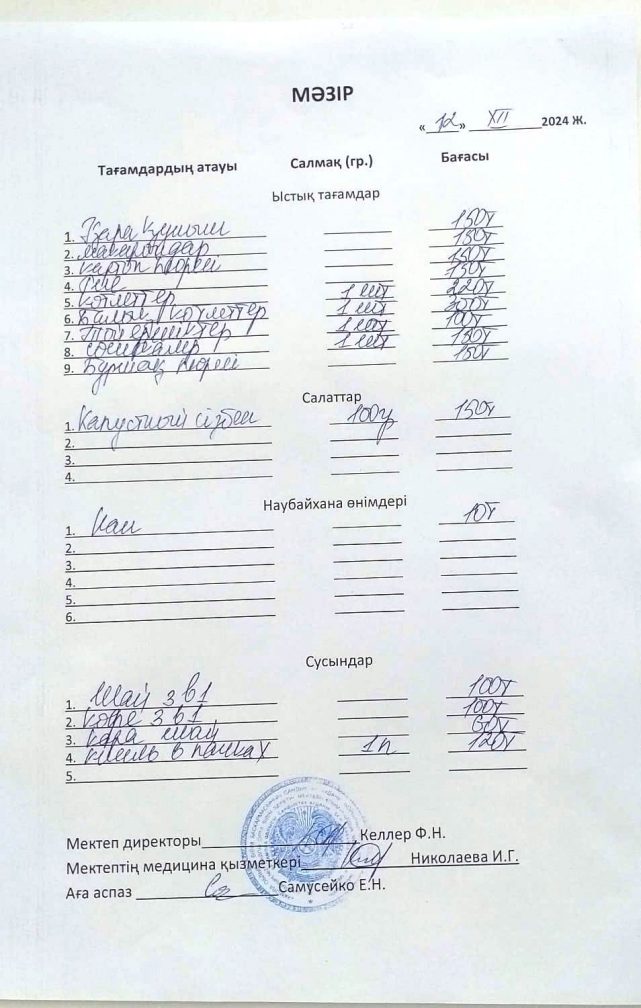 МӘЗІР
« 12 » XII 2024 ж.
Тағамдардың атауы Салмақ (гр.) Бағасы
Ыстық тағамдар
1. Қара құмық 150т
2. макарондар 150т
3. картоп пюреси 150т
4. 150т
5. котлеттер 1 шт 220т
6. Балық котлеттер 1 шт 200т
7. Тефтельдер 1 шт 100т
8. сосискалар 1 шт 150т
9. Бұршақ пюреси 150т
Салаттар
1. Капустный сізбен 100гр 150т
2.
3.
4.
Наубайхана өнімдері
1. Нан 10т
2.
3.
4.
5.
6.
Сусындар
1. Шай 3 в 1 100т
2. кофе 3 в 1 100т
3. қара шай 60т
4. кисель в пачках 1п 120т
5.
Мектеп директоры Келлер Ф.Н.
Мектептің медицина қызметкері Николаева И.Г.
Аға аспаз Самусейко Е.Н.